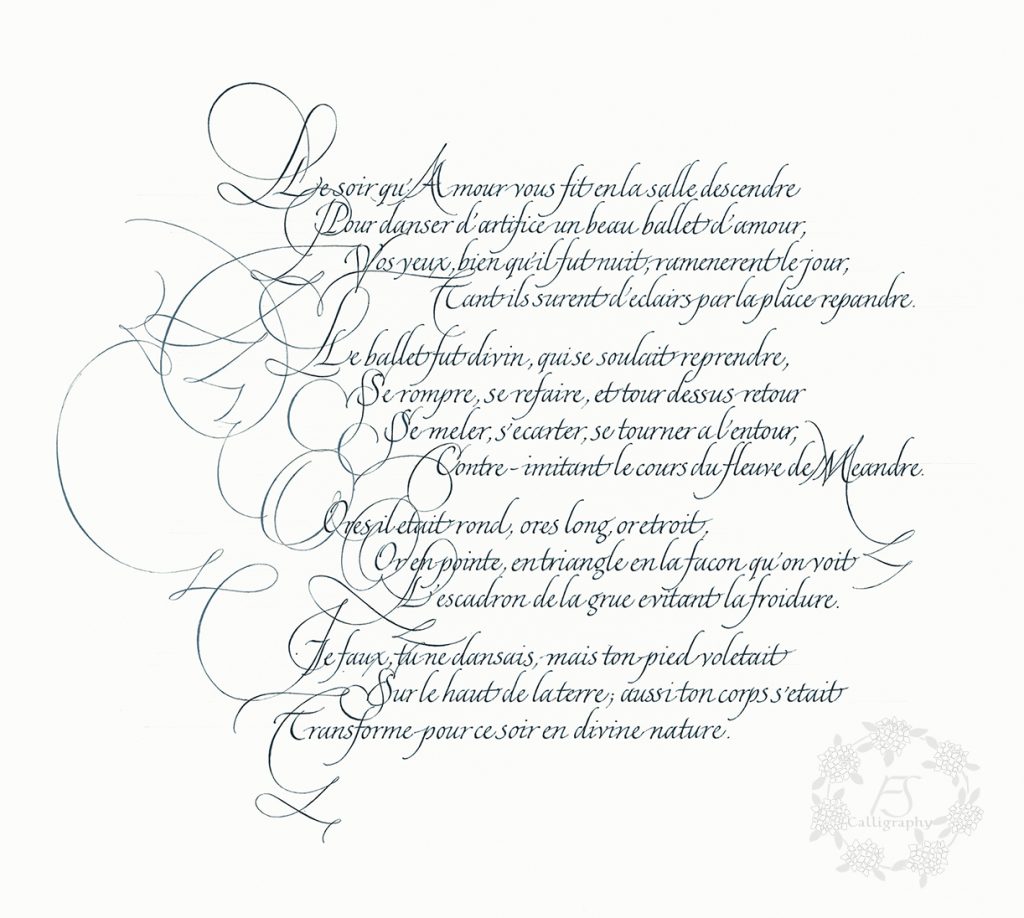 Le soir qu'Amour vous fit en la salle descendre
Pour danser d'artifice un beau ballet d'amour,
Vos yeux, bien qu'il fut nuit, ramenerent le jour,
Tant ils surent d'eclairs par la place repandre.
Le ballet fut divin, qui se soulait reprendre,
Se rompre, se refaire, et tour dessus retour
Se meler, s'ecarter, se tourner a l'entour,
Contre-imitant le cours du fleuve de Meandre.
Ores il etait rond, ores long, or etroit,
Or en pointe, en triangle en la facon qu'on voit
L'escadron de la grue evitant la froidure.
Je faux, tu ne dansais, mais ton pied voletait
Sur le haut de la terre; aussi ton corps s'etait
Transforme pour ce soir en divine nature.
FS
Calligraphy